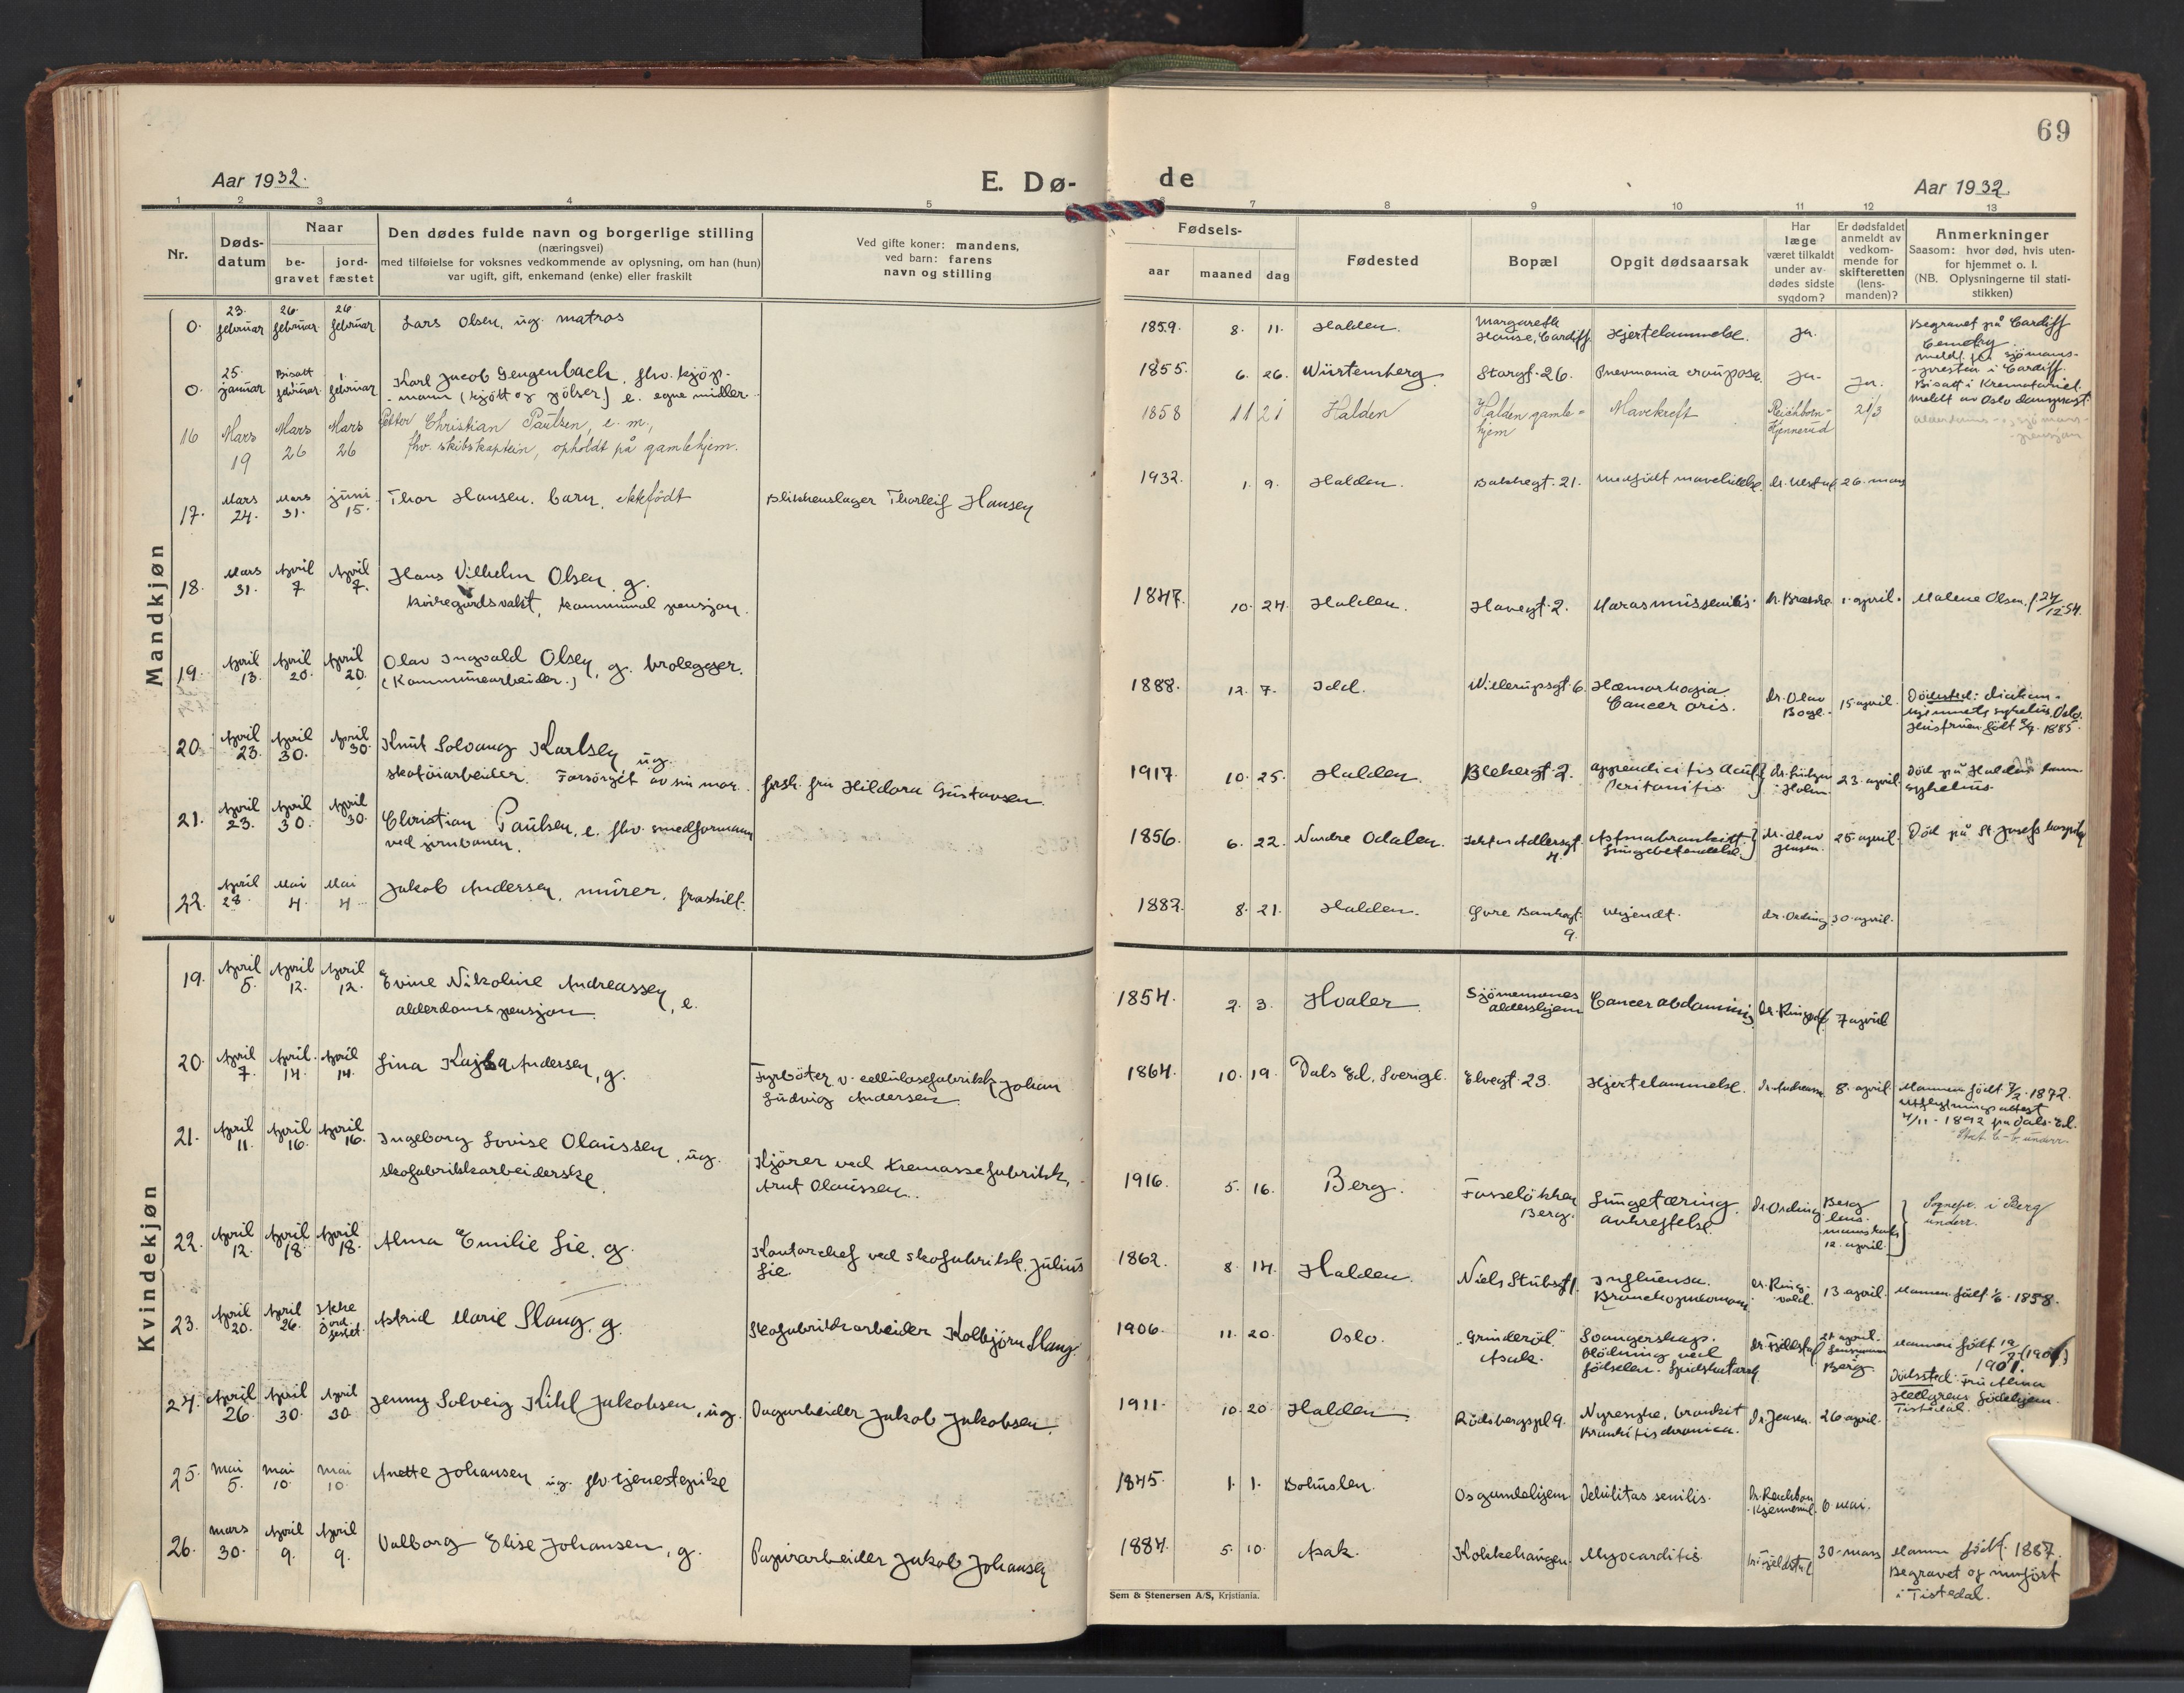 69
Aar 1932.
E. Dø-
de
Aar 1932.
1 2 3 4 5 6 7 8 9 10 11 12 13
Nr.
Døds-
datum
Naar
be-
gravet
jord-
fæstet
Den dødes fulde navn og borgerlige stilling
(næringsvei)
med tilføielse for voksnes vedkommende av oplysning, om han (hun)
var ugift, gift, enkemand (enke) eller fraskilt
Ved gifte koner: mandens,
ved barn: farens
navn og stilling
Fødsels-
aar
maaned
dag
Fødested
Bopæl
Opgit dødsaarsak
Har
læge
været tilkaldt
under av-
dødes sidste
sygdom?
Er dødsfaldet
anmeldt av
vedkom-
mende for
skifteretten
(lens-
manden)?
Anmerkninger
Saasom: hvor død, hvis uten-
for hjemmet o. l.
(NB. Oplysningerne til stati-
stikken)
Mandkjøn
0. 23. februar 26. februar 26 februar
Lars Olsen, ug. matros
1859. 8. 11. Halden.
Margareth
House, Cardiff.
Hjertelammelse. Ja.
Begravet på Cardiff
Meldt fra sjömans-
presten i Cardiff.
0. 25. januar Bisatt 1. februar 1. februar
Karl Jacob Gengenbach, fhv. kjöp-
mann (kjött og pölser) e. egne midler.
1855. 6. 26. Würtemberg. Storgt. 26. Pneumonia crouposa. Ja. Ja.
Bisatt i Krematoriet.
Meldt av Oslo domprost.
16 Mars 19 Mars 26 Mars 26
Petter Christian Paulsen, e. m.,
fhv. skibskaptein, opholdt på gamlehjem.
1858 11 21 Halden
Halden gamle-
hjem
Mavekreft
Reichborn-
Kjennerud
21/3
17. Mars 24. Mars 31. juni 15.
Thor Hansen. barn, ektefødt
Blikkenslager Thorleif Hansen
1932. 1. 9. Halden. Bakkegt. 21. medfödt mavelidelse. 26. mars
18. Mars 31. April 7 April 7.
Hans Vilhelm Olsen, g.
kiregårdsvakt, kommunal pensjon.
1847. 10. 24. Halden. Havegt. 2. Marasmus senilis. 1. april.
Malene Olsen, f. 24/12 54.
19. April 13. April 20. April 20.
Olav Ingvald Olsen, g. brolegger.
(Kommunearbeider.)
1888. 12. 7. Idd. Willerupsgt. 6.
Hæmorhagia.
Cancer oris.
dr. Olav
15 april.
Dödssted: diakon-
hjemmets sykehus, Oslo.
Hustruen född 5/4. 1885.
20. April 23. April 30. April 30.
Knut Solvang Karlsen, ug.
skotöiarbeider. Forsörget av sin mor.
frsk. fru Hildora Gustavsen
1917. 10. 25. Halden. Blekergt. 2.
appendicitis acut.
Peritonitis
23. april.
Död på Halden kom.
sykehus.
21. April 23. April 30. April 30.
Christian Paulsen, e. fhv. smedformann
ved jernbanen.
1856. 6. 22. Nordre Odalen.
4.
Astmabronkitt.
Lungebetendelse.
dr. Olav
Jensen.
25. april.
Död på St. Josefs hospital
22. April 28. Mai 4. Mai 4.
Jakob Andersen, murer, fraskilt.
1882. 8. 21. Halden.
Øvre Bankegt.
9.
Ukjendt. dr. Ording. 30. april.
Kvindekjøn
19. April 5. April 12. April 12.
Evine Nikoline Andreassen, e.
alderdomspensjon.
1854. 2. 3. Hvaler.
Sjömennenes
aldershjem
Cancer abdominis 7 april
20. April 7. April 14. April 14.
Lina Kajsa Andersen, g.
Fyrböter v. cellulosefabrikk Johan
Ludvig Andersen
1864. 10. 19. Dals Ed, Sverige. Elvegt. 23. Hjertelammelse. 8. april
Mannen född 7/2. 1872.
Utflytningsattest
4/11 - 1892 fra Dals-Ed.
21. April 11. April 16. April 16.
Ingeborg Lovise Olaussen, ug.
skofabrikkarbeiderske.
Kjörer ved tremassefabrikk,
Arnt Olaussen.
1916. 5. 16. Berg.
Fosselökken
Berg.
Lungetæring.
avkreftelse
Dr. Ording
Berg
lens-
12. april.
Sognepr. i Berg
underr.
22. April 12. April 18. April 18.
Alma Emilie Lie, g.
Kontorchef ved skofabrikk. Julius
Lie.
1862. 8. 14. Halden. Niels Stubsgt 1.
Influensa.
Bronchopneumoni
dr. Ring-
vold.
13 april. Mannen född 1/6. 1858.
23. April 20. April 26. Ikke jord festet.
Astrid Marie Slang, g.
Skofabrikkarbeider Kolbjörn Slang.
1906. 11. 20. Oslo.
"Grinderöd"
Asak.
Svangerskap.
Blödning ved
födselen.
21 april.
Berg.
1901.
Dödssted: Fru Alma
Hellgrens födehjem.
Tistedal.
24. April 26. April 30. April 30
Jenny Solveig Kihl Jakobsen, ug.
Dagarbeider Jakob Jakobsen.
1911. 10. 20. Halden. Rödsbergspl. 9.
Nyresyke, bronkit
Bronkitis chronica.
Dr. Jensen. 26 april.
25. Mai 5. Mai 10. Mai 10.
Anette Johansen ug. fhv. tjenestepike
1845. 1. 1. Bohuslen. Os gamlehjem. Debilitas senilis. 6 mai.
26. Mars 30. April 9. April 9.
Valborg Elise Johansen, g.
Papirarbeider Jakob Johansen
1884. 5. 10. Asak. Kokkehaugen. Myocarditis 30. mars
Mannen född 1887.
Begravet og innfört
i Tistedal.
Sem & Stenersen A/S, Kristiania.